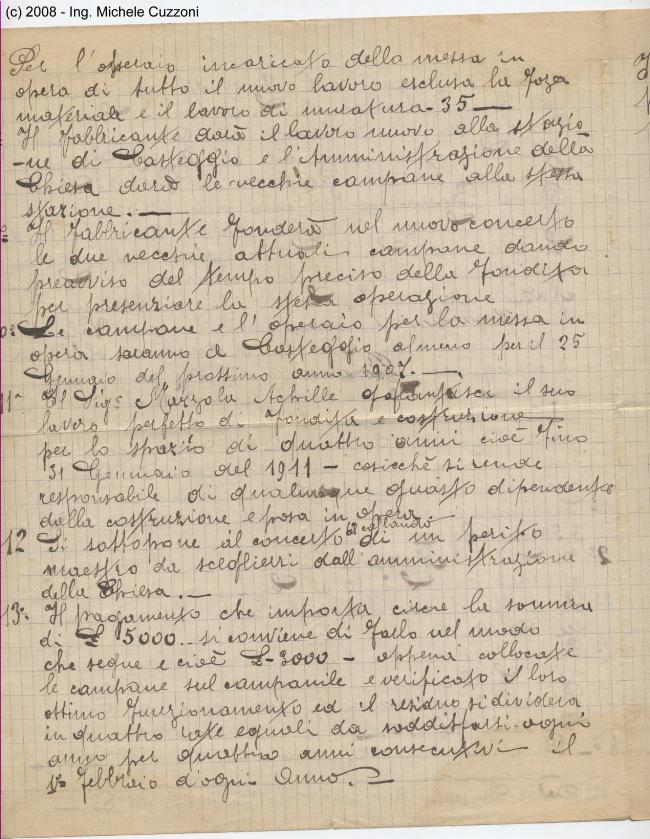 (c) 2008 - Ing. Michele Cuzzoni
Per l'operaio incaricato della messa in
opera di tutto il nuovo lavoro esclusa la forza
materiale e il lavoro di muratura - 35 —
Il fabbricante darà il lavoro nuovo alla stazio
-ne di Casteggio e l'Amministrazione della
Chiesa darà le vecchie campane alla stessa
stazione. —
Il fabbricante fonderà nel nuovo concerto
le due vecchie attuali campane dando
preavviso del tempo preciso della fondita
per presenziare la stessa operazione
Le campane e l'operaio per la messa in
opera saranno a Casteggio almeno per il 25
Gennaio del prossimo anno 1907. —
11° Il Sig. Mazzola Achille garantisce il suo
lavoro perfetto di fondita e costruzione
per lo spazio di quattro anni cioè fino
31 Gennaio del 1911 - cosicchè si rende
responsabile di qualunque guasto dipendente
dalla costruzione e posa in opera.
12 Si sottopone il concerto al collaudo di un perito
maestro da scegliersi dall'amministrazione
della Chiesa. —
13° Il pagamento che importa circa la somma
di £ 5000 - si conviene di farlo nel modo
che segue e cioè £ 3000 - appena collocate
le campane sul campanile e verificato il loro
ottimo funzionamento ed il residuo si dividerà
in quattro rate eguali da soddisfarsi ogni
anno per quattro anni consecutivi il
1° febbraio d'ogni anno. —